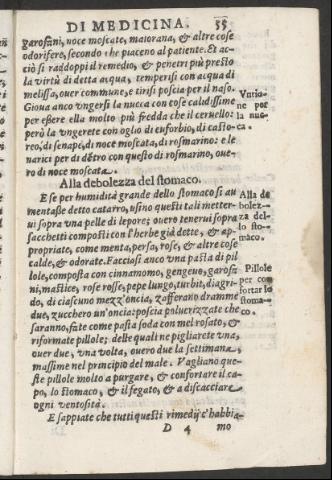 DI MEDICINA. 55
garofani, noce moscate, maiorana, & altre cose
odorifere, secondo che piaceno al patiente. Et ac-
ciò si raddoppi il remedio, & penetri più presto
la virtù di detta acqua, temperisi con acqua di
melissa, ouer commune, e tirisi poscia per il naso.
Gioua anco vngersi la nucca con cose calidissime
per eßere ella molto più fredda che il ceruello:
però la vngerete con oglio di euforbio, di casto-
reo, di senape, di noce moscata, di rosmarino: e le
narici per di dẽtro con questo di rosmarino, oue-
ro di noce moscata.
Vntio-
ne per
la nuc-
ca.
Alla debolezza del stomaco.
E se per humidità grande dello stomaco si au
mentasse detto catarro, usino questi tali metter-
ui sopra vna pelle di lepore; ouero tenerui sopra
sacchetti composti con l'herbe già dette, & ap-
propriate, come menta, persa, rose, & altre cose
calde, & odorate. Facciasi anco vna pasta di pil
lole, composta con cinnamomo, gengeuo, garofa
ni, mastice, rose rosse, pepe lungo, turbit, diagri-
di, di ciascuno mezz'oncia, zafferano dramme
due, zucchero un'oncia: poscia puluerizzate che
saranno, fate come pasta soda con mel rosato, &
riformate pillole; delle quali ne pigliarete vna,
ouer due, vna volta, ouero due la settimana,
massime nel principio del male. Vagliano que-
ste pillole molto a purgare, & confortare il ca-
po, lo stomaco, & il fegato, & a discacciare
ogni ventosità.
Alla de
bolez-
za del-
lo sto-
maco.
Pillole
per con
fortar lo
stoma-
co.
E sappiate che tutti questi rimedij c'habbia-
D 4 mo